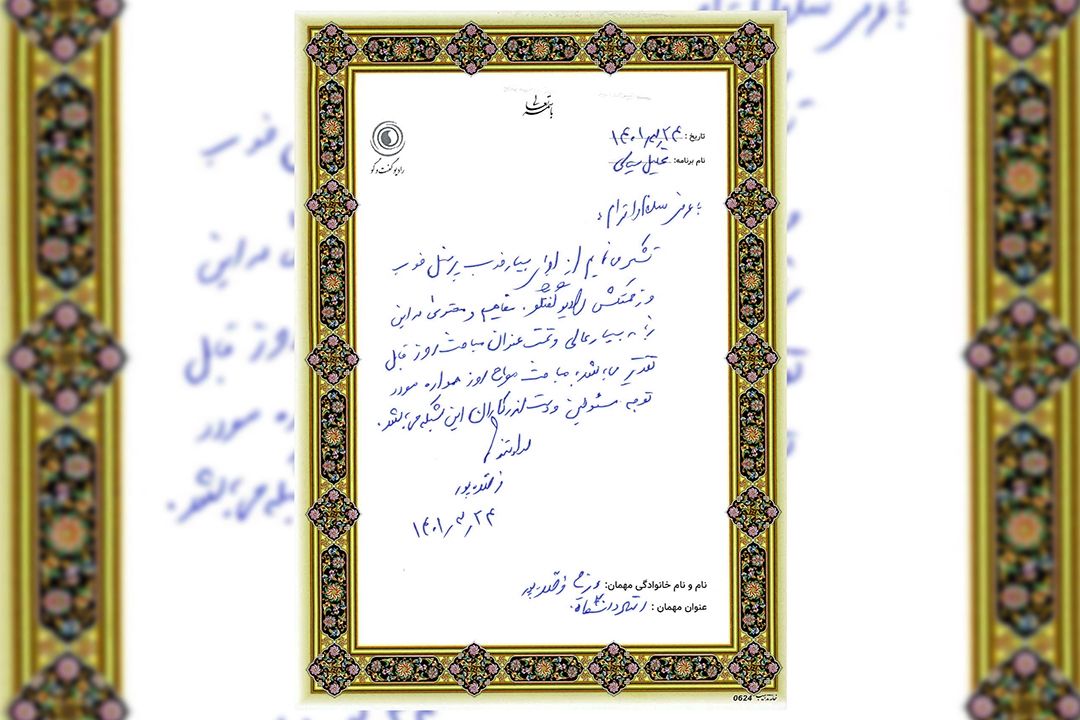 باسمه تعالی
رادیو گفت‌و‌گو
تاریخ : ۱۴۰۱
نام برنامه: تحلیل سیاسی
با عرض سلام و احترام،
تشکر می‌نمایم از اجرای بسیار خوب پرسنل خوب
و زحمتکش رادیو گفتگو. مفاهیم و محتوای در این
برنامه بسیار عالی و تحت عنوان مباحث روز قابل
تقدیر می‌باشد. مباحث روز همواره مورد
توجه مسئولین و دست اندرکاران این شبکه می‌باشد.
ارادتمند
۱۴۰۱
نام و نام خانوادگی مهمان:
عنوان مهمان : استاد دانشگاه.
0624